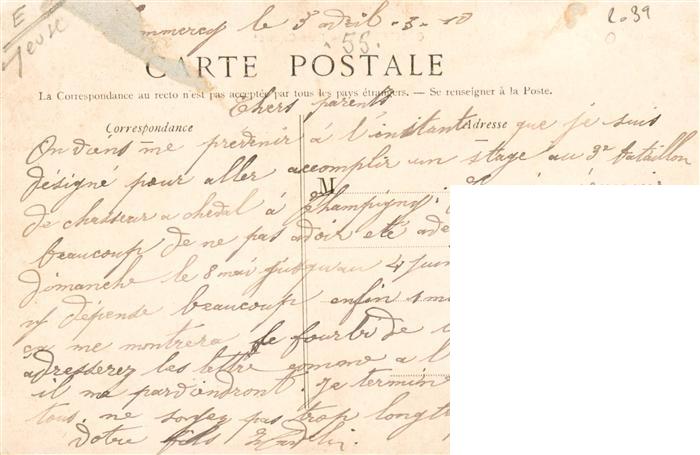 E
Meuse
Commercy le 3 avril -3-10
2039
55.
CARTE POSTALE
La Correspondance au recto n'est pas acceptée par tous les pays étrangers. — Se renseigner à la Poste.
Chers parents
Correspondance
Adresse
On viens me prévenir à l'instant que je suis
désigné pour aller accomplir un stage au 3e bataillon
M
de chasseur a cheval à Champigny.
beaucoup de ne pas avoir eté
dimanche le 8 mai jusqu'au 4 juin
n'y dépense beaucoup enfin
ça me montrera le fourbi de
adresserez les lettre comme a l
il me parviendront. Je termine
tous. ne soyez pas trop longt
Votre fils